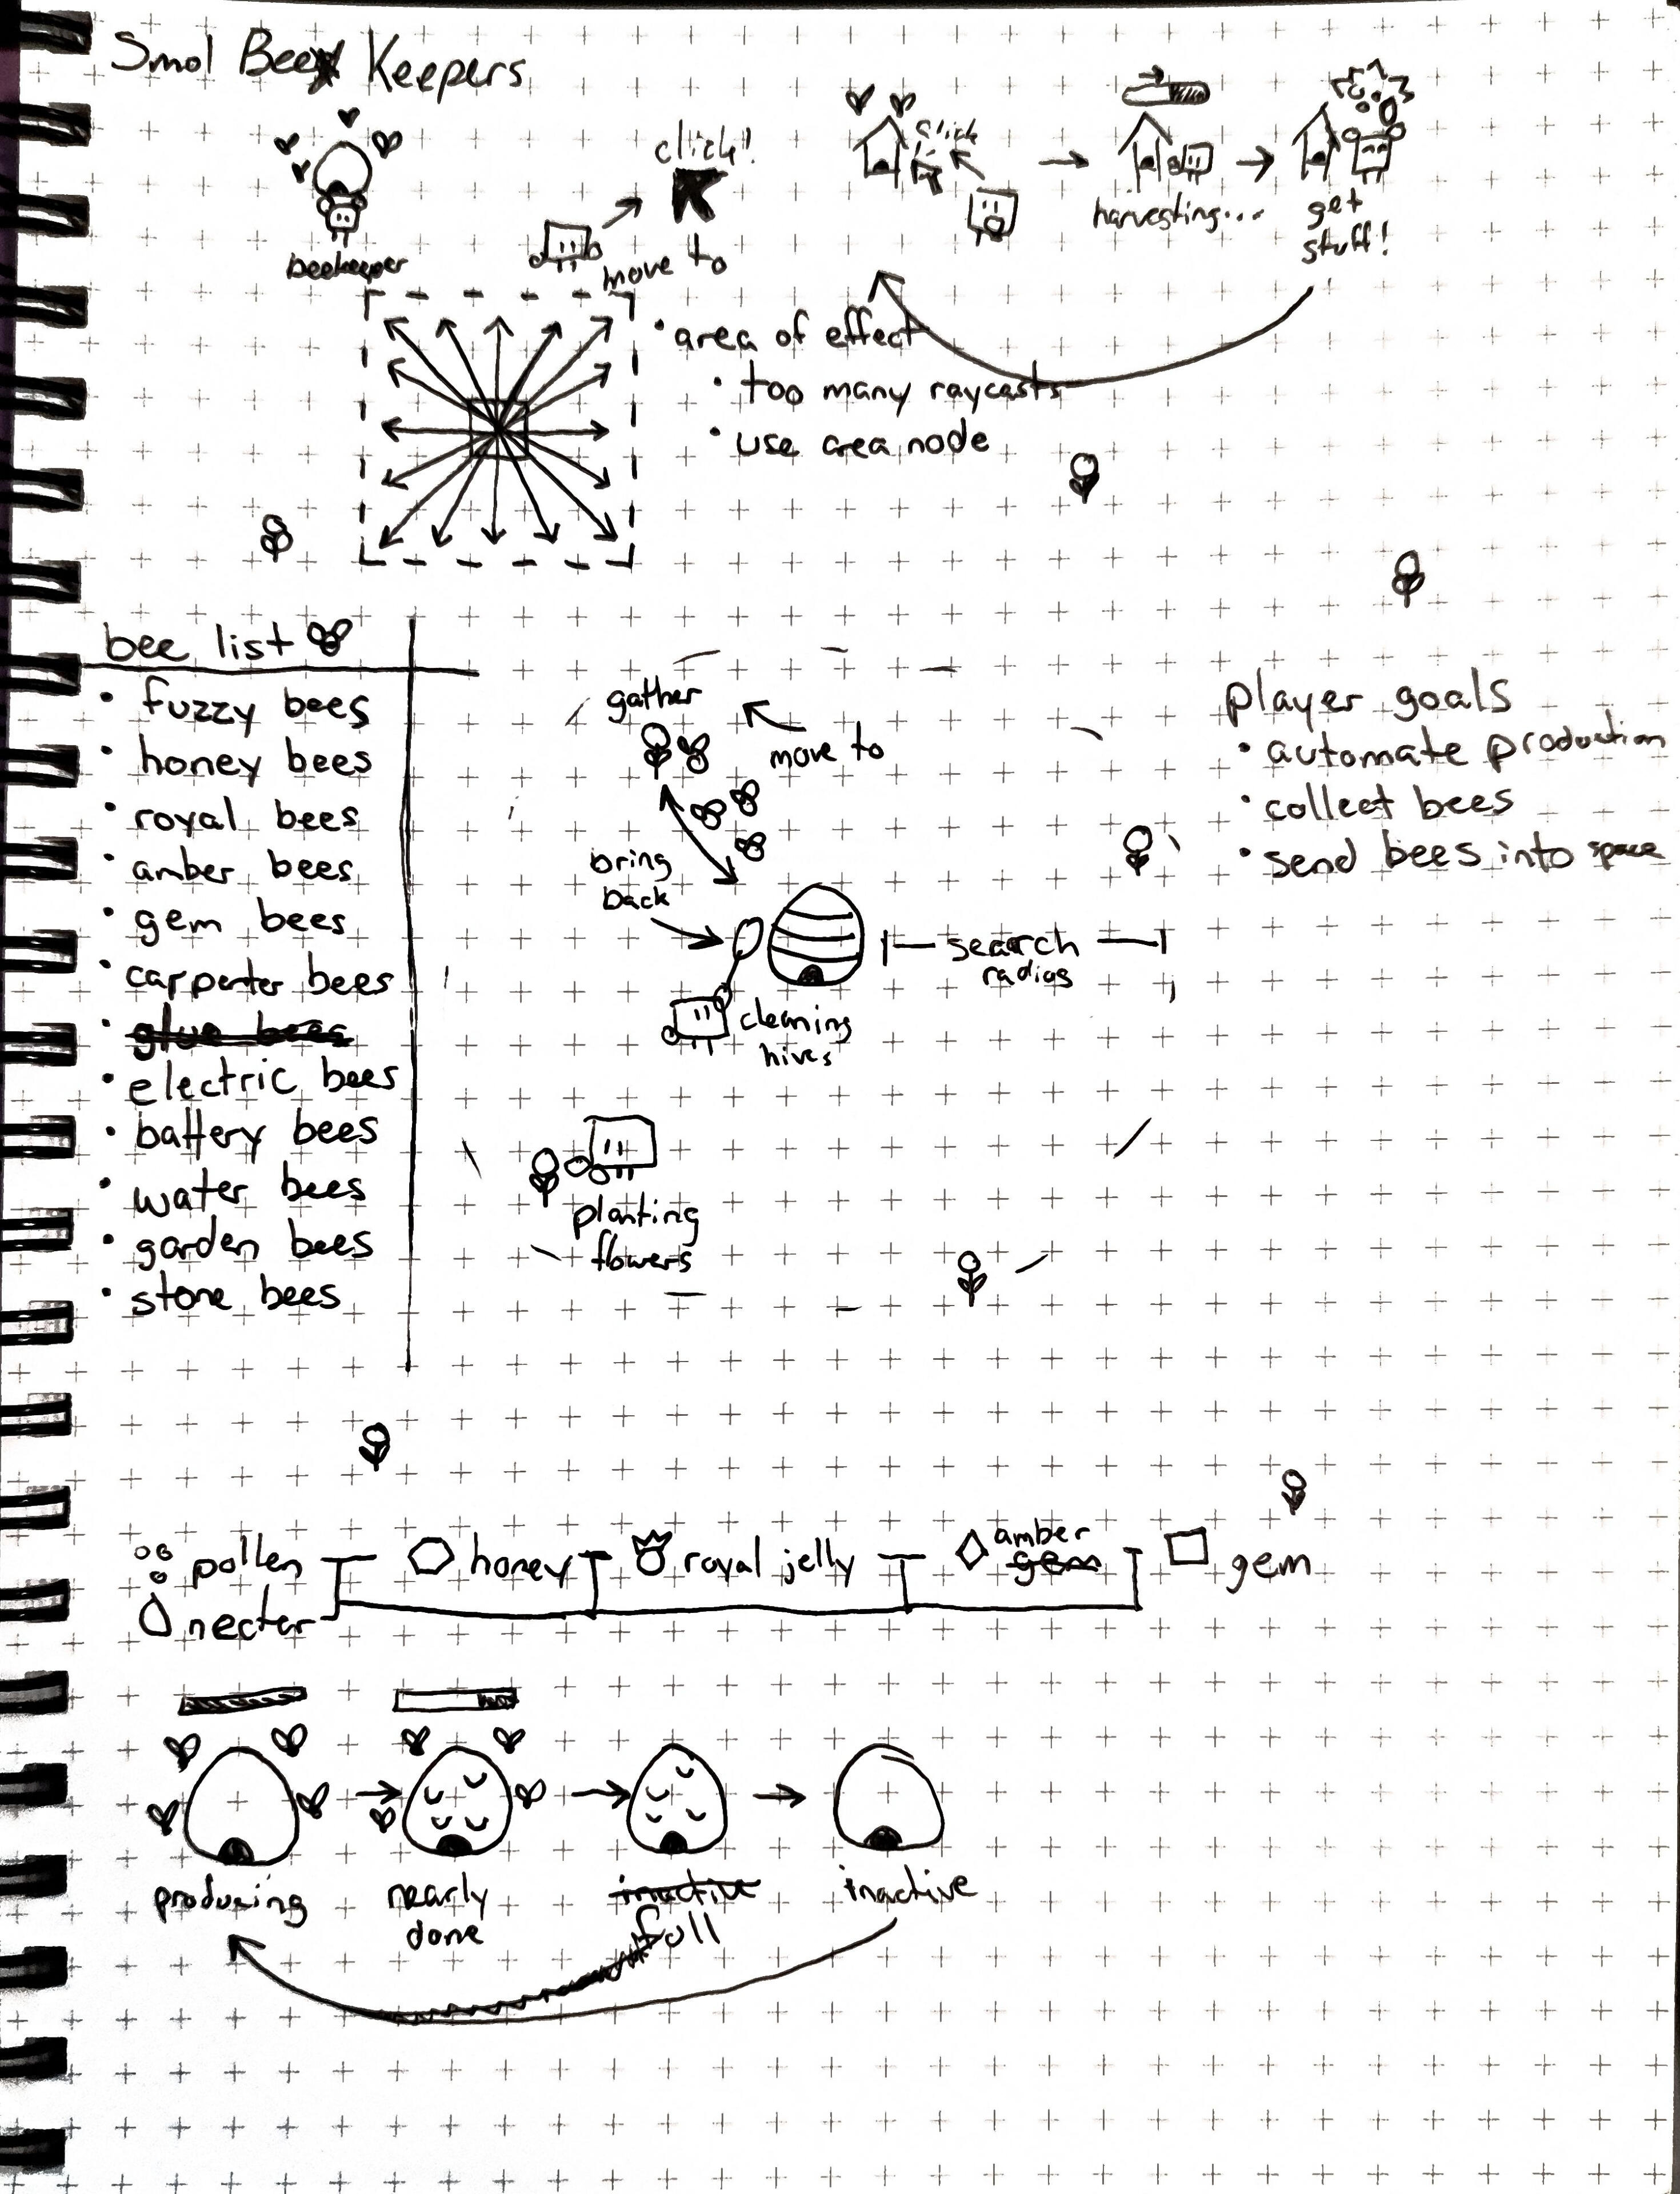 Smol Bee Keepers
beekeeper
click!!
move to
click
harvesting...
get
stuff!
• area of effect
• too many raycasts
• use area node
bee list
• fuzzy bees
• honey bees
• royal bees
• amber bees
• gem bees
• carpenter bees
• glue bees
• electric bees
• battery bees
• water bees
• garden bees
• stone bees
gather
move to
bring
back
search
radius
cleaning
hives
planting
flowers
player goals
• automate production
• collect bees
• send bees into space
pollen
nectar
honey
royal jelly
amber
gem
gem
producing
nearly
done
inactive
full
inactive